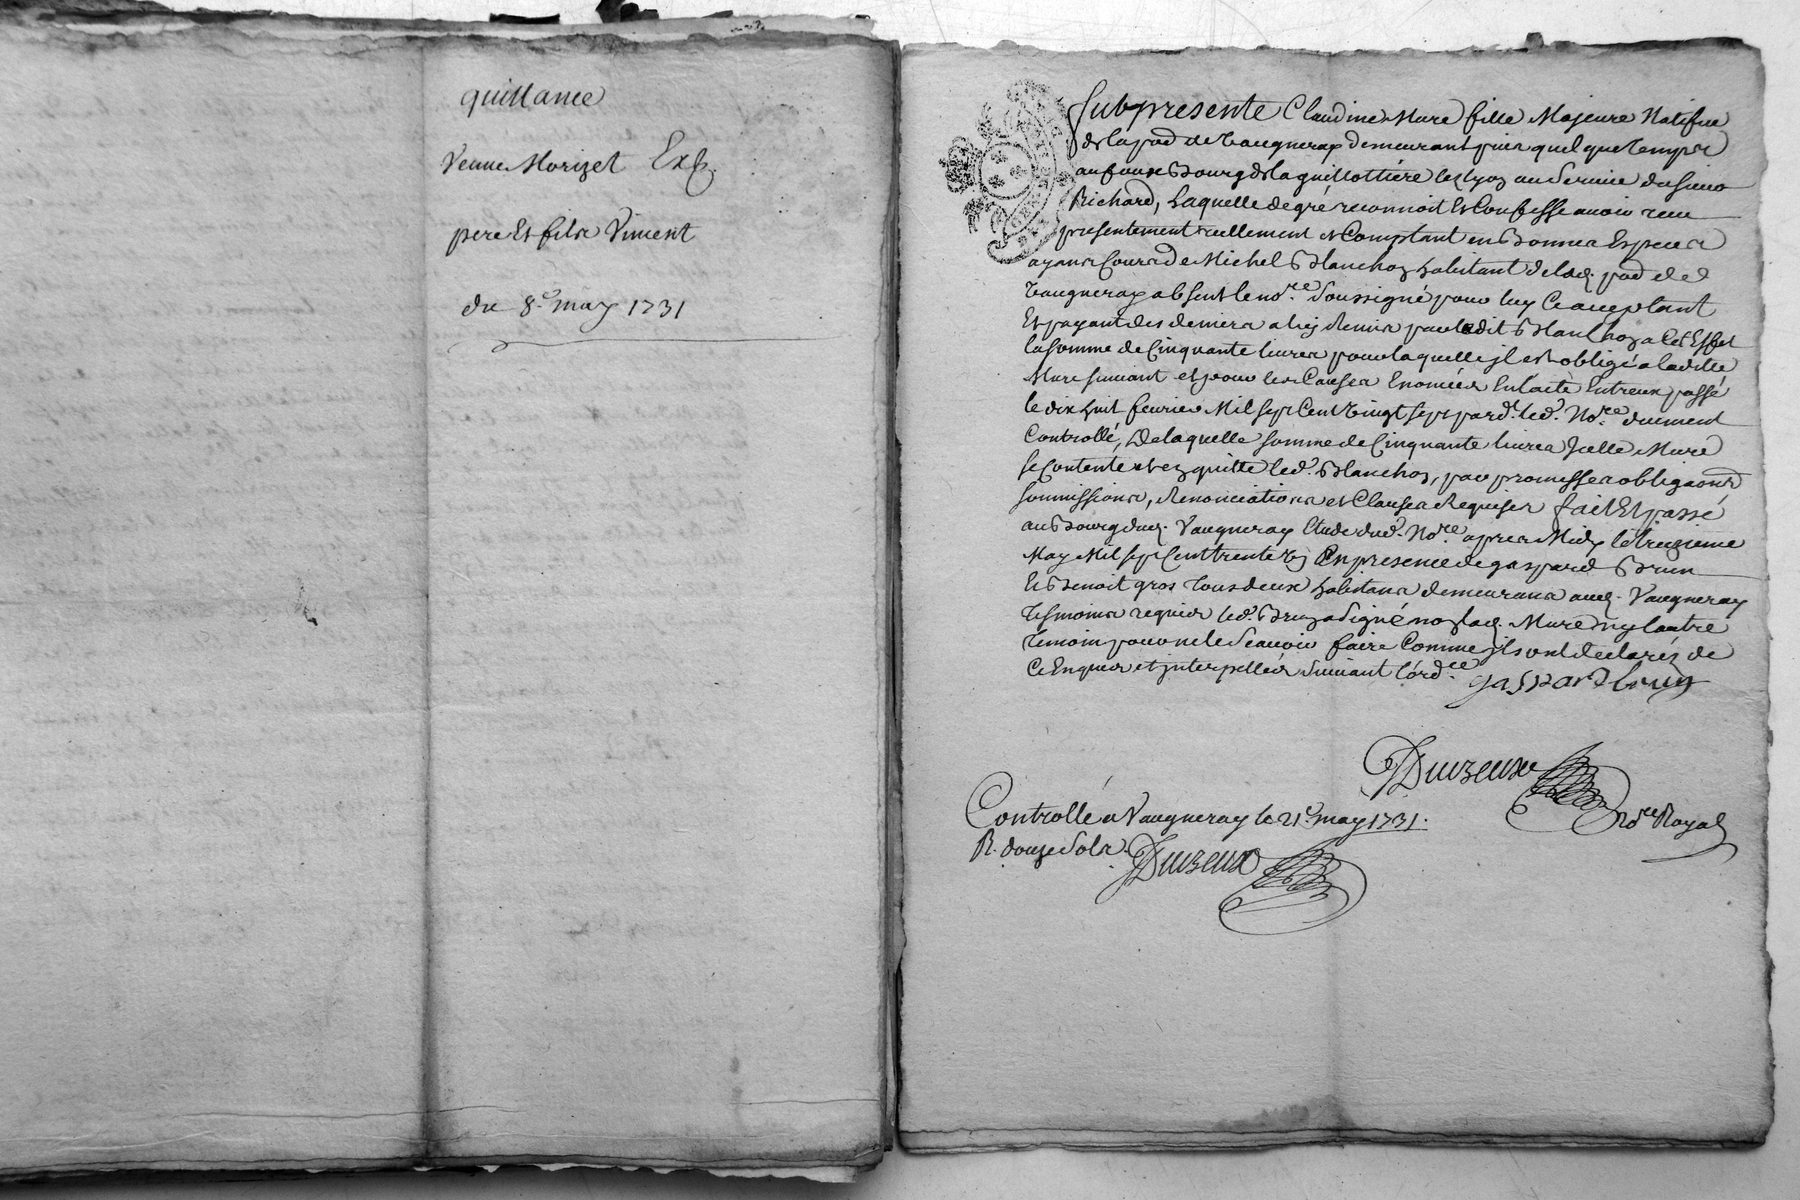 quittance
Veuve Morizet Exp.
pere Et fils Viment
du 8.e may 1731
Sut presente Claudine Mure fille Majeure Natifue
de la pad de Vaugneray demeurant puis quelque temps
au faux Bourg de la guillottiére les lyon au Service du Sieur
Richard, Laquelle de gré reconnoit Et Confesse avoir reeu
presentement reellement et Comptant en Bonnes Especes
ayans Cours de Michel Blanchon habitant de lad. pad dud
Vaugneray absent le no.re Soussigné pour luy Ceaceptant
Et payant des deniers a luy Remis par ledit Blanchon a Cet Effet
la Somme de Cinquante livres pour laquelle jl est obligé a laditte
Mure suivant et pour les Causes Enoncées En lacte Entreux passé
le dix huit fevrier Mil sept Cent Vingt sept pard.t led. No.re duement
Controllé, De laquelle somme de Cinquante livres Jcelle Mure
se Contente et en quitte led. Blanchon, par promesses obligaons
soumissions, Renonciations et Clauses Requises fait Et passé
au Bourg dud. Vaugneray Etude dud. No.re apres Midy le treizieme
May Mil sept Cent trente Vn En presence de gaspard Brun
Et Benoit gros tous deux habitans demeurans aud. Vaugneray
tesmoins requis led. Brun a Signé non lad. Mure ny lautre
témoin pour ne le Scavoir faire Comme jls ont declarés de
Ce Enquis et jnterpellés Suivant l'ord.ce
gaspard brun
Duizeux
No.re Royal
Controllé a Vaugneray le 21.e may 1731.
R. douze Sols. Duizeux